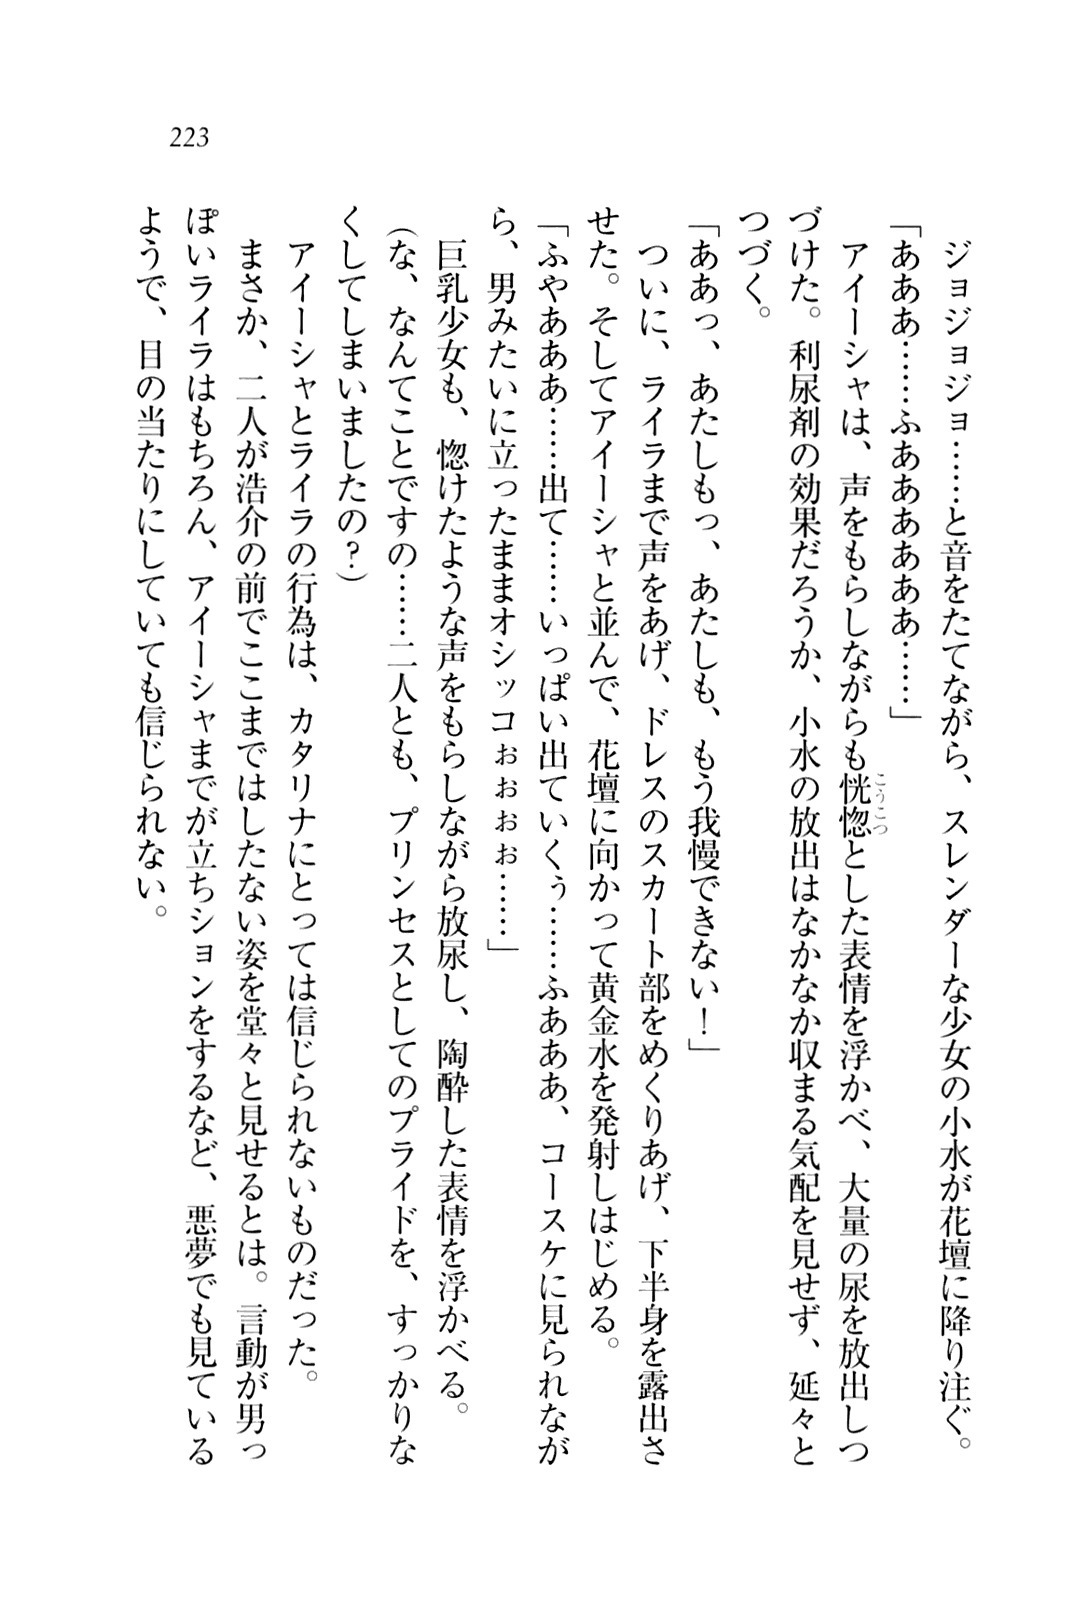 223
ジョジョジョ……と音をたてながら、スレンダーな少女の小水が花壇に降り注ぐ。
「あああ……ふああああああ……」
アイーシャは、声をもらしながらも恍惚とした表情を浮かべ、大量の尿を放出しつ
こうこつ
づけた。利尿剤の効果だろうか、小水の放出はなかなか収まる気配を見せず、延々と
つづく。
「ああっ、あたしもっ、あたしも、もう我慢できない！」
ついに、ライラまで声をあげ、ドレスのスカート部をめくりあげ、下半身を露出さ
せた。そしてアイーシャと並んで、花壇に向かって黄金水を発射しはじめる。
「ふやあああ……出て……いっぱい出ていくぅ……ふあああ、コースケに見られなが
ら、男みたいに立ったままオシッコぉぉぉぉ……」
巨乳少女も、惚けたような声をもらしながら放尿し、陶酔した表情を浮かべる。
（な、なんてことですの……二人とも、プリンセスとしてのプライドを、すっかりな
くしてしまいましたの？）
アイーシャとライラの行為は、カタリナにとっては信じられないものだった。
まさか、二人が浩介の前でここまではしたない姿を堂々と見せるとは。言動が男っ
ぽいライラはもちろん、アイーシャまでが立ちションをするなど、悪夢でも見ている
ようで、目の当たりにしていても信じられない。